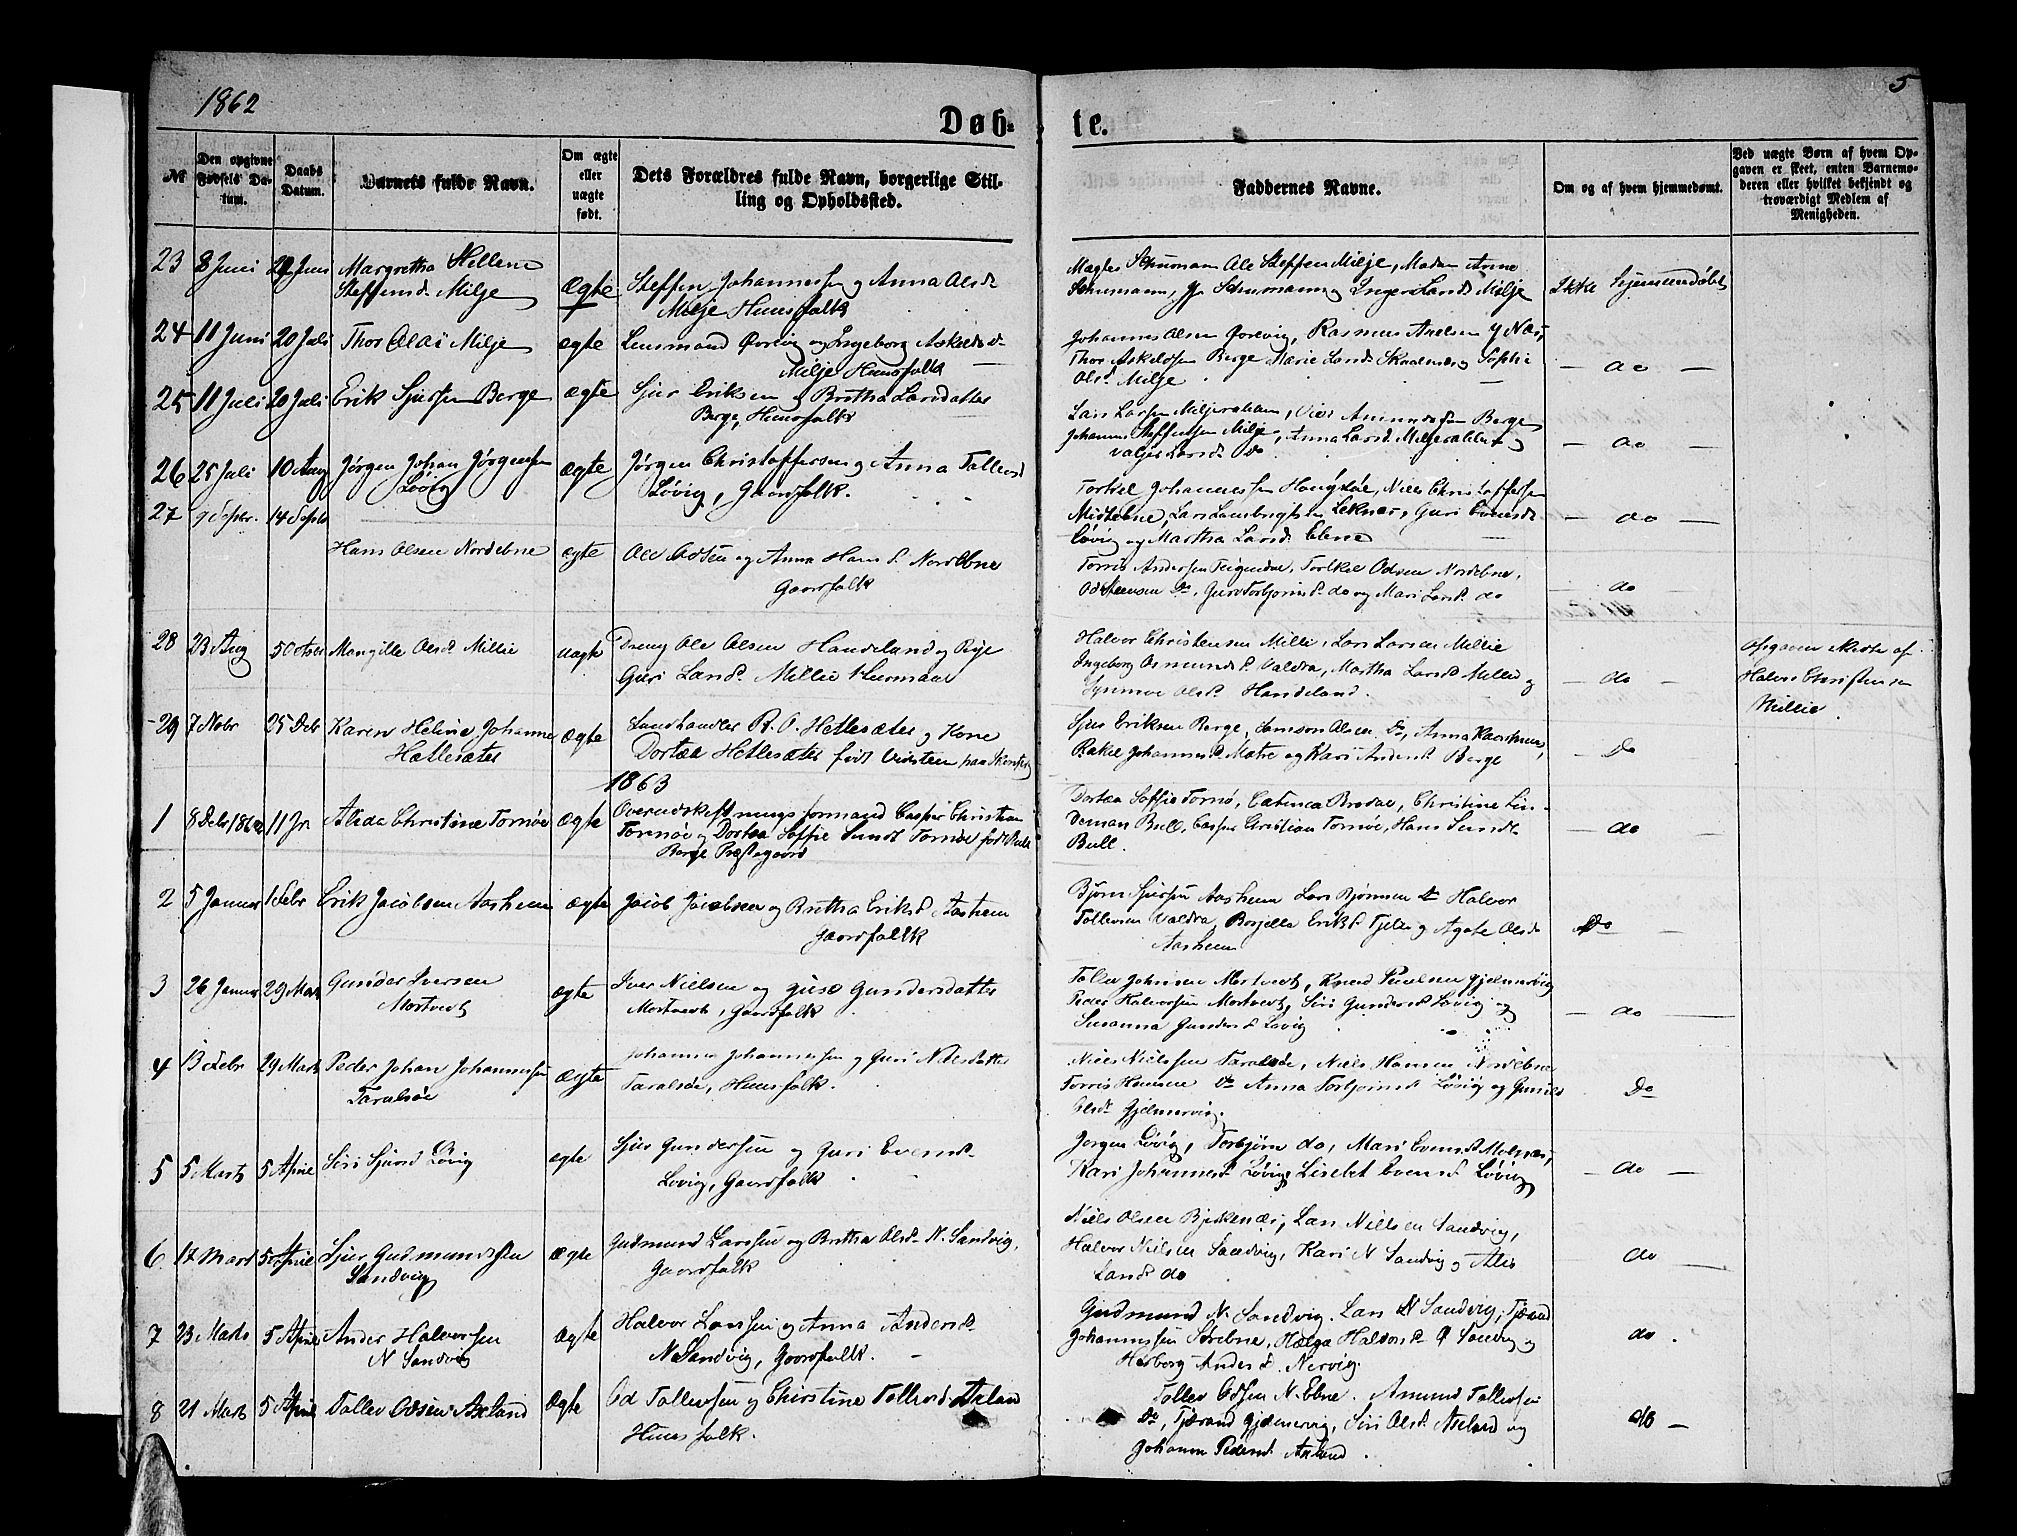 1862
5
Døb-
te.
№
Den opgivne Fødsels Datum.
Daabs Datum.
Barnets fulde Navn.
Om ægte eller uægte født.
Dets Forældres fulde Navn, borgerlige Stilling og Opholdssted.
Faddernes Navne.
Om og af hvem hjemmedøbt.
Ved uægte Børn af hvem Opgaven er skeet, enten Barnemoderen eller hvilket bekjendt og troværdigt Medlem af Menigheden.
23 8 Juni Juni Margretha Hellene
Steffensd. Milje
Ægte
Steffen Johannessen og Anna Olsd
Milje Huusfolk
Ole Steffen Milje, Madam Anne
Schumann, Schumann og Inger Larsd Milje
Ikke hjemmedøbt
24 11 Juni 20 Juli Thor Olai Milje
ægte
Lensmand Øvrevig og Ingeborg Askeldsd
Milje Huusfolk
Johannes Olsen Øvrevig, Rasmus Axelsen
Thor Askeldsen Berge Marie Larsd og Sophie
Olsd Milje
25 11 Juli 20 Juli Erik Sjursen Berge
ægte
Sjur Eriksen og Bretha Larsdatter
Berge, Huusfolk
Lars Larsen Amundsen Berge
Johannes Steffensen Milje, Anna Larsd
Larsd Do
26 25 Juli 10 Aug Jørgen Johan Jørgensen
Løvig
ægte
Jørgen Christoffersen og Anna Tollevsd
Løvig, Gaardfolk.
Torkel Johannessen Niels Christoffersen
Midtebne, Lars Lambrigtsen Leknes, Guri Evensd
Løvig og Martha Larsd. Ebne
do
27 9 Septbr. 14 Septb
Hans Olsen Nordebne
ægte
Ole Odsen og Anna Hans d. Nordebne
Gaardfolk
Torris Andersen Teigendal, Torkel Odsen Nordebne,
Od Steensen Do, Guri Torbjørnsd. do og Mari Larsd. do
do
28 23 Aug 5 Octbr Mangille Olsd. Millie
uægte
Dreng Ole Olsen Handeland og Pige
Guri Larsd. Millie
Halvor Christensen Millie, Lars Larsen Millie
Ingeborg Osmundsd. Valdra, Martha Larsd Millie og
Synneve Olsd. Handeland.
do
Opgaven skeet af
Halvor Christensen
Millie.
29 7 Nobr 25 Debr Karen Heline Johanne
Hetlesæter
ægte
Landhandler R. O. Hetlesæter og Kone
Dortea Hetlesæter født
Sjur Eriksen Berge, Samson Olsen Do, Anna
Rakel Johannesd. Matre og Kari Andersd Berge
Do
1863
1 8 Debr 1862 11 Jr Alida Christine Tornøe
ægte
Casper Christian
Tornøe og Dortea Soffie Sundt Tornøe født Bull
Berge Præstegaard
Dortea Soffie Tornø, Catinca Brodal, Christine Lin-
deman Bull, Casper Christian Tornøe, Hans Sundt
Bull.
do
2 5 Januar 1 Febr Erik Jacobsen Aasheim
ægte
Jacob Jacobsen og Bretha Eriksd Aasheim
Gaardfolk
Bjørn Sjursen Aasheim Lars Bjørnsen Do Halvor
Tollevsen Valdra, Eriksd. og Agate Olsd
Aasheim
Do
3 26 Januar 29 Marts Gunder Iversen
Mostvedt
ægte
Iver Nielsen og Gundersdatter
Mostvedt, Gaardfolk.
Tollev Johnsen Mostvedt, Knud Poulsen Gjelmervig
Peder Halvorsen Mostvedt, Siri Gundersd. Løvig og
Susanna Gundersd. Løvig
do
4 13 Febr 29 Marts Peder Johan Johannessen
Taralsøe
ægte
Johannes Johannessen og Guri Nilsdatter
Taralsøe, Huusfolk.
Niels Nielssen Taralsøe, Niels Hansen Nordebne
Torris Hansen Do Anna Torbjørnsd Løvig og
Olsd. Gjelmervig.
Do
5 5 Marts 5 April Siri Sjursd Løvig
ægte
Sjur Gundersen og Guri Evensd.
Løvig, Gaardfolk
Jørgen Løvig, Torbjørn do, Mari Evensd Molnæs,
Kari Johannesd. Løvig Lisebet Evensd. Løvig
do
6 17 Mart 5 April Sjur Gudmundsen
Sandvig
ægte
Gudmund Larssen og Bretha Olsd. N. Sandvig,
Gaardfolk
Niels Olsen Bjerkenæs, Lars Nielsen Sandvig,
Halvor Nielsen Sandvig, Kari N Sandvig og
Larsd. do
do
7 23 Marts 5 April Ander Halvorsen
N Sandvig
Ægte
Halvor Larssen og Anna Andersd.
N. Sandvig, Gaardfolk.
Gudmund N. Sandvig. Lars N Sandvig, Tjærand
Johannessen Helga Haldorsd. Sandvig og
Herborg Andersd. Nervig.
do.
8 21 Marts 5 April Tollev Odsen Axland
Ægte
Od Tollevsen og Christine Tollevsd. Axland
Huusfolk.
Tollev Odsen N. Ebne. Amund Tollevsen
Do, Tjærand Gjelmervig, Siri Olsd. Axland og
Johanne Pedersd. Axland.
do